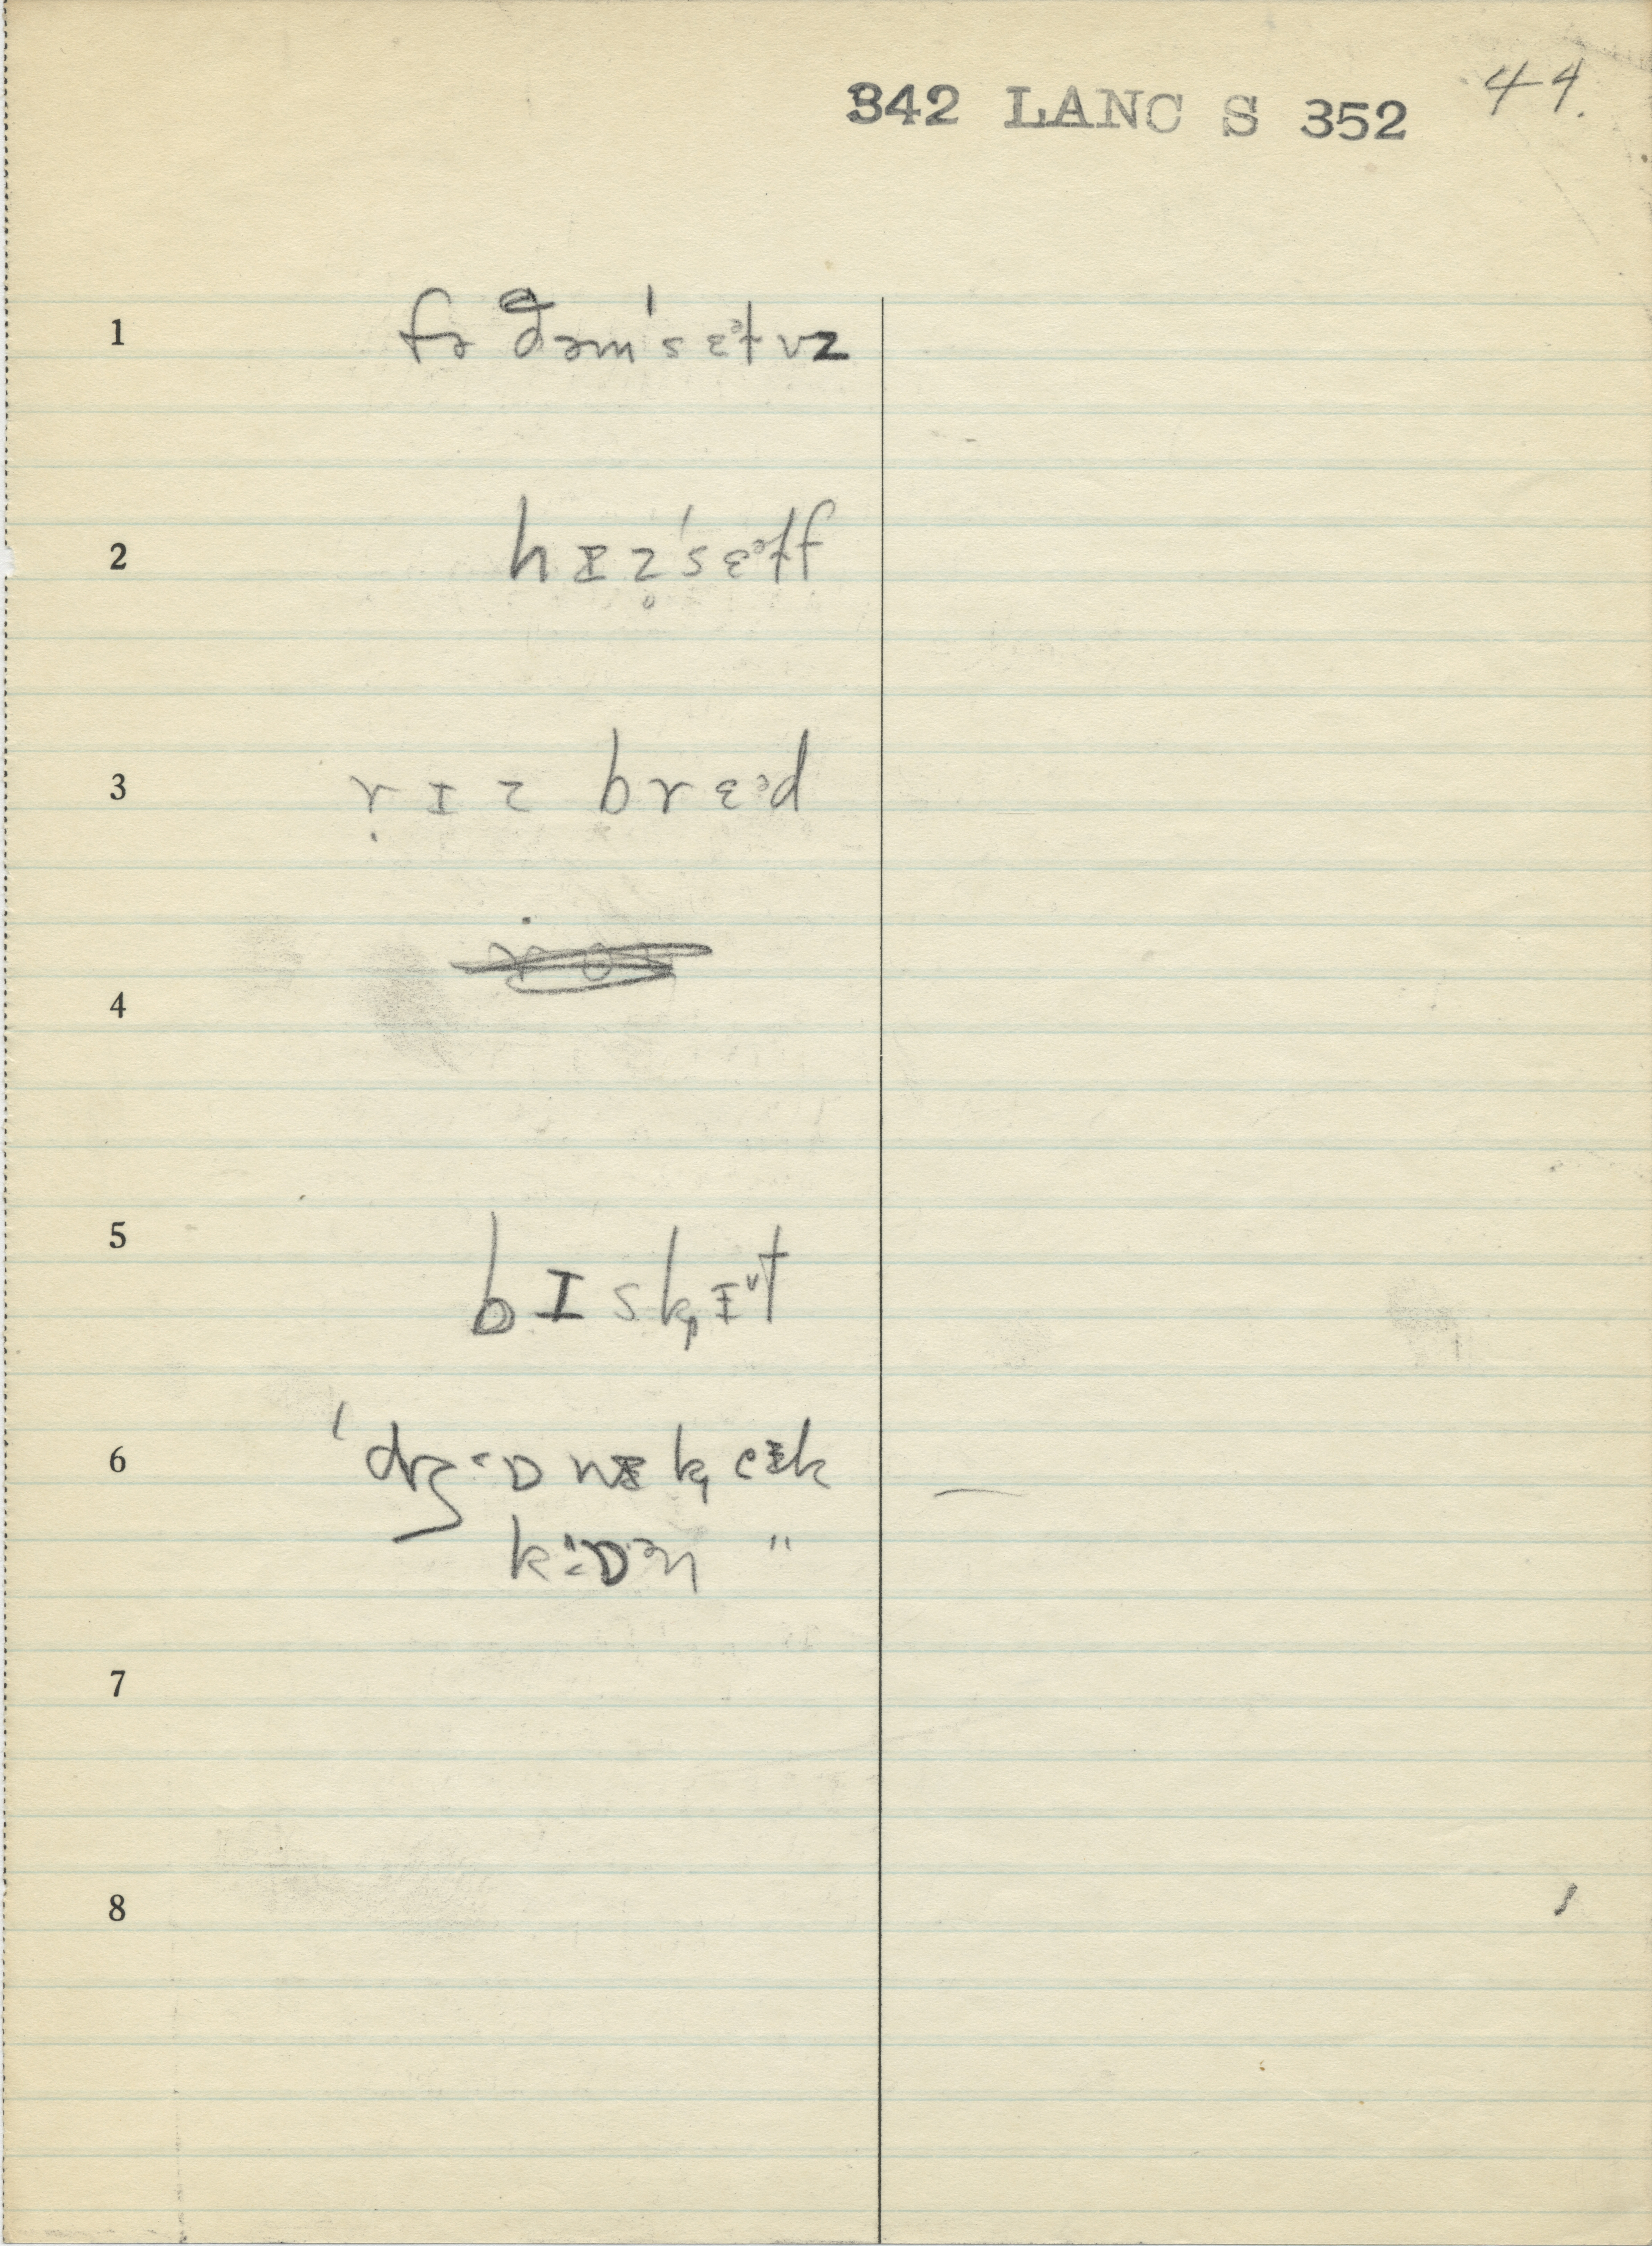 342 LANC S 352 44.
1 fɚ ðəmˈsɛᵊɫvz
2 hɪz̥ˈsɛᵊɫf
3 ṛɪz brɛᵊd
4
5 bɪsk̡ɪ˅t
6 ˈdʒɒnɪk̡ eɪk
k:ɒᵊn "
7
8